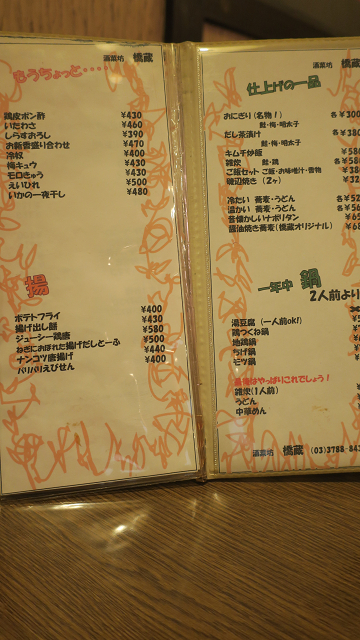 酒菜坊 橋蔵
もうちょっと・・・・・
鶏皮ポン酢 ¥430
いたわさ ¥460
しらすおろし ¥390
お新香盛り合わせ ¥470
冷奴 ¥400
梅キュウ ¥430
モロきゅう ¥430
えいひれ ¥500
いかの一夜干し ¥480
揚
ポテトフライ ¥400
揚げ出し豚 ¥430
ジューシー鶏唐 ¥580
ねぎにおぼれた揚げだしとーふ ¥500
ナンコツ唐揚げ ¥440
パリパリえびせん ¥400
酒菜坊 橋蔵
仕上げの一品
おにぎり(名物!) 各¥300
鮭・梅・明太子
だし茶漬け 各¥380
鮭・梅・明太子
キムチ炒飯
雑炊 鮭・鶏
ご飯セット ご飯・お味噌汁・香物
磯辺焼き(2ヶ)
冷たい 蕎麦・うどん
温かい 蕎麦・うどん
昔懐かしいナポリタン
醤油焼き蕎麦(橋蔵オリジナル)
一年中 鍋
2人前より
湯豆腐 (一人前ok!)
鶏つくね鍋
地鶏鍋
ちげ鍋
モツ鍋
最後はやっぱりこれでしょう!
雑炊(1人前)
うどん
中華めん
酒菜坊 橋蔵 (03)3788-84